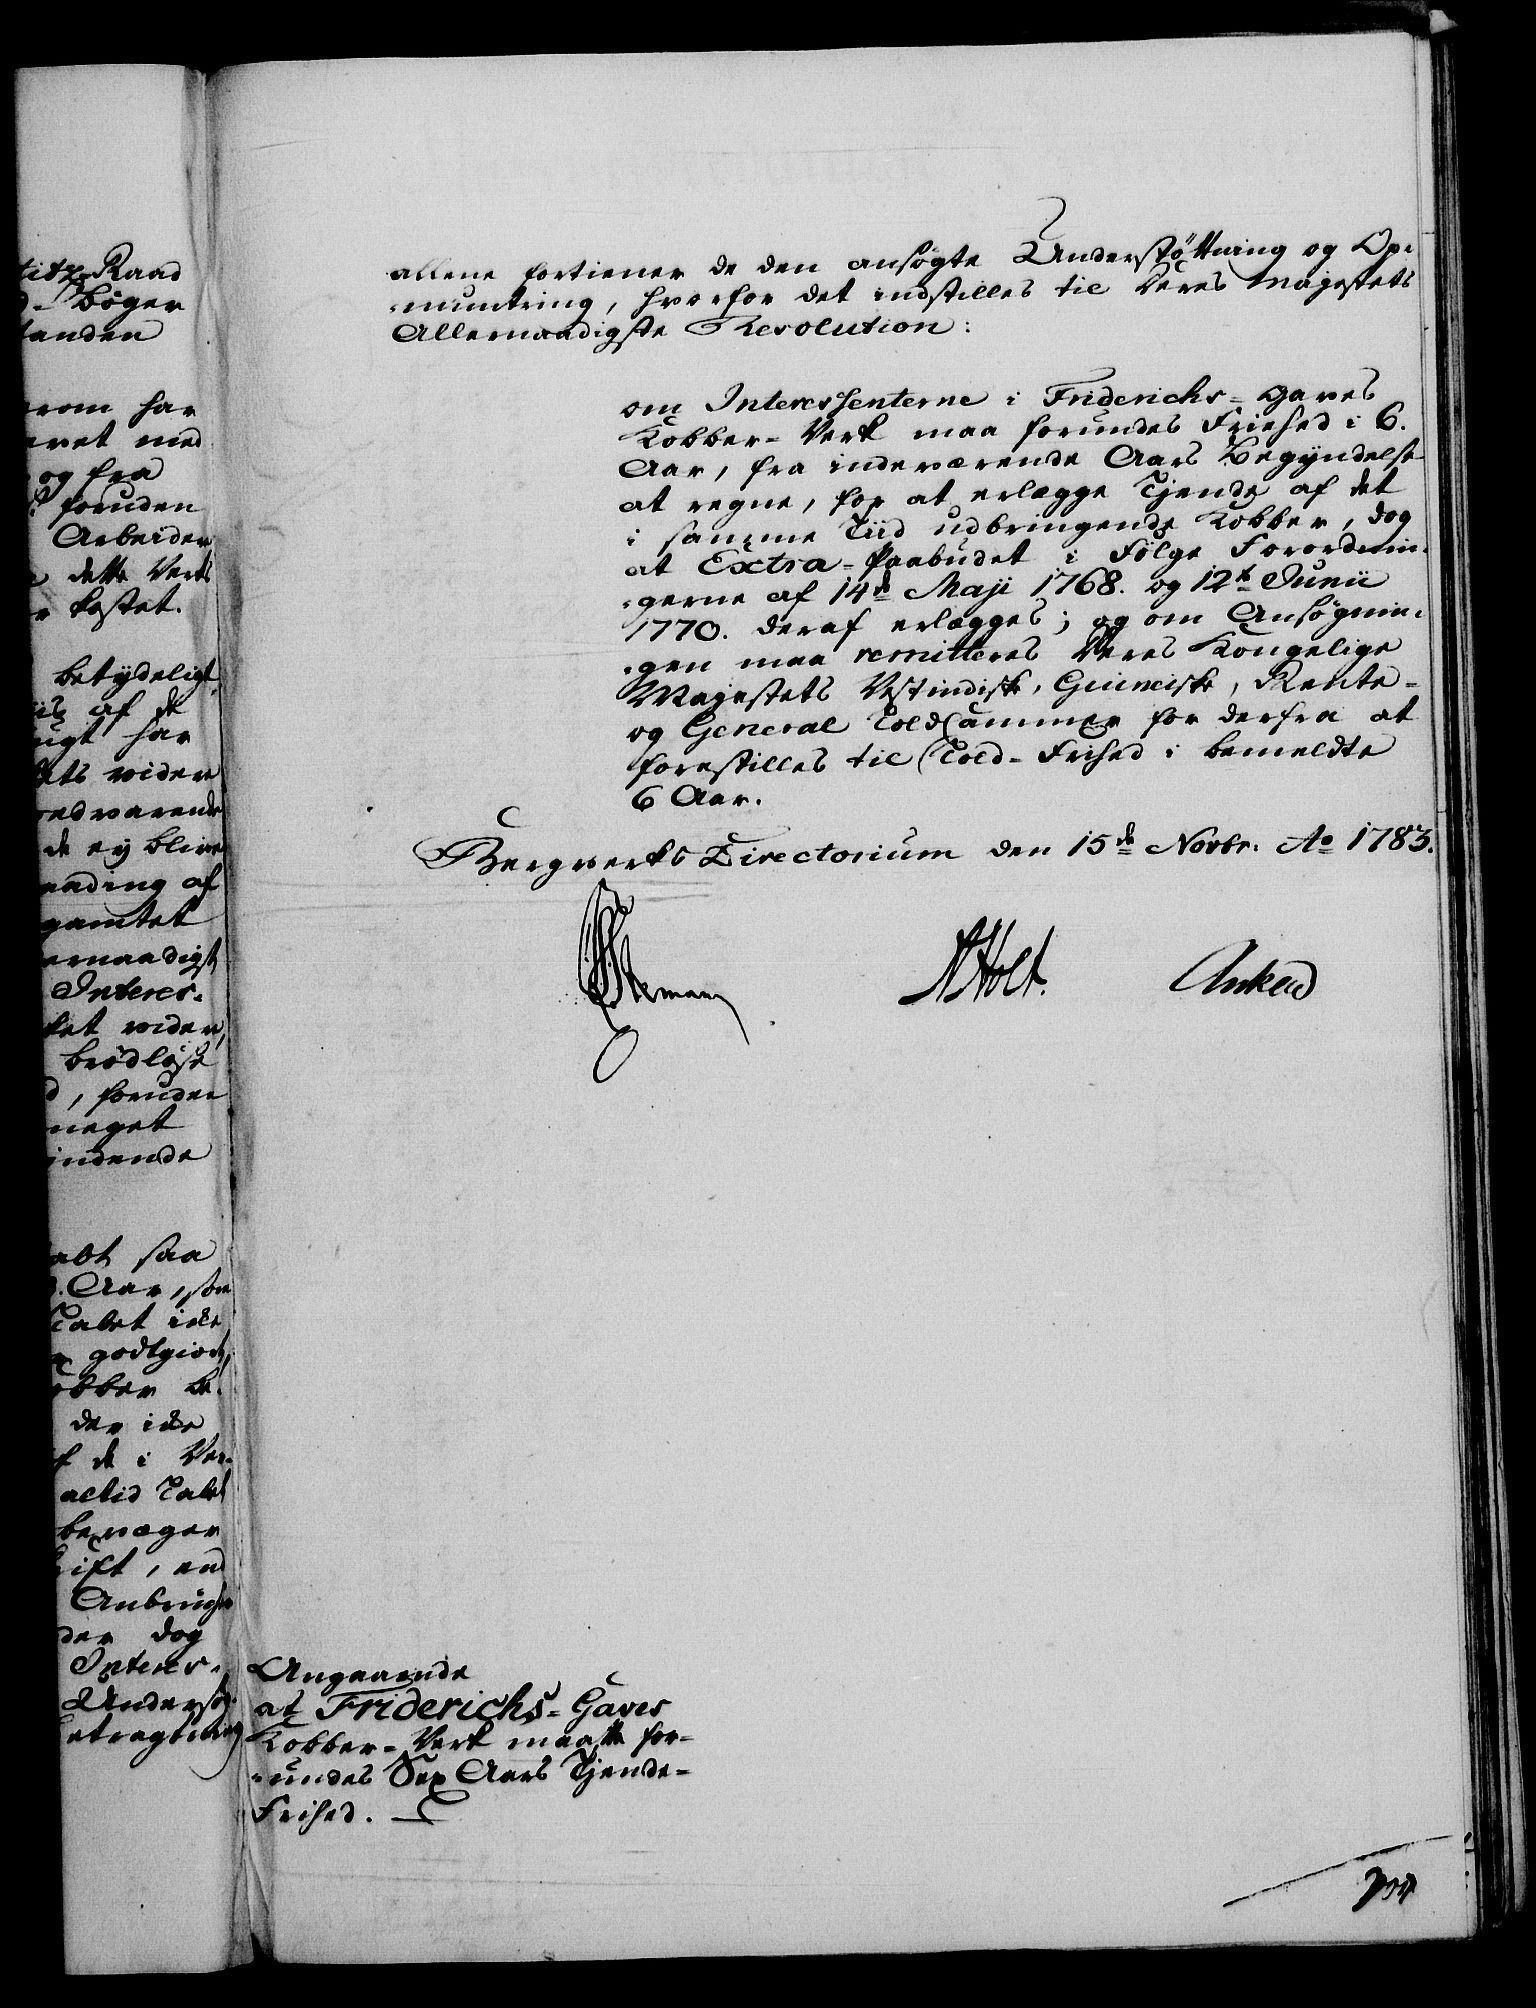 titz-Raad
d- bøger
tanden
erom har
eret med
og fra
foruden
Arbeider
dette Verk
kostet.
betydeligt
iis af de
ugt har
ets videre
edvarende
de ey blive
ending af
gamtet
ernaadigst
Interes-
ket videre,
brødløse
d, foruden
meget
indende
abt saa
Aar, som
Tabet ikke
godtgiort,
obber be-
der ikke
de i Ver-
altid Tabt
bevæger
rift, end
Anbrug
der dog
Interes-
Undersø-
etragtning
allene fortiener de den ansøgte Understøttning og Op-
-muntring, hvorfor det indstilles til Deres Majestets
Allernaadigste Resolution:
om Interessenterne i Friderichs-Gaves
Kobber-Verk maa forundes Friehed i 6.
Aar, fra indeværende Aars Begyndelse
at regne, for at erlægge Tjende af det
i samme Tiid udbringende Kobber, dog
at Extra-Paabudet i Følge Forordnin-
-gerne af 14de Maji 1768. og 12te Junii
1770. deraf erlægges; og om Ansøgnin-
-gen maa remitteres Deres Kongelige
Majestets Vestindiske, Guineiske, Rente-
og General ToldCammer for derfra at
forestilles til Told-Frihed i bemeldte
6 Aar.
Bergverks Directorium den 15de Novbr. Ao 1783.
Stemann
Holt.
Anker
Angaaende
at Friderichs-Gaves
Kobber-Verk maatte for-
-undes Sex Aars Tjende-
Frihed.